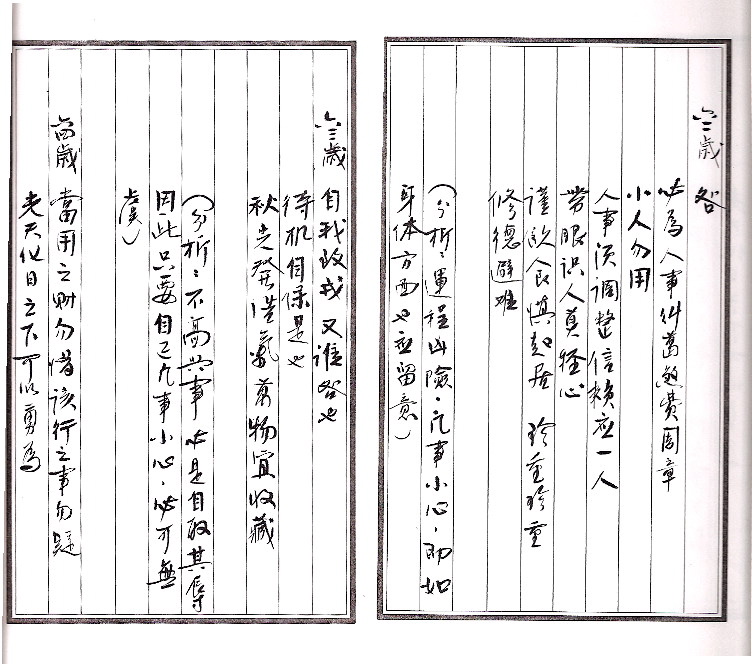 六二歲 咎
必為人事件費周章
小人勿用
人事須調整信賴应一人
勞眼識人莫輕心
謹飲食慎起居 珍重珍重
修德避难
（分析：運程凶險，凡事小心，即如
身体方面也应留意）
六三歲 自我致戎又谁咎也
待机自保是也
秋光發氣萬物宜收藏
（分析：不高兴事必是自取其辱
因此只要自己凡事小心，必可無
虞）
六四歲 當用之财勿惜该行之事勿疑
光天化日之下可以勇為